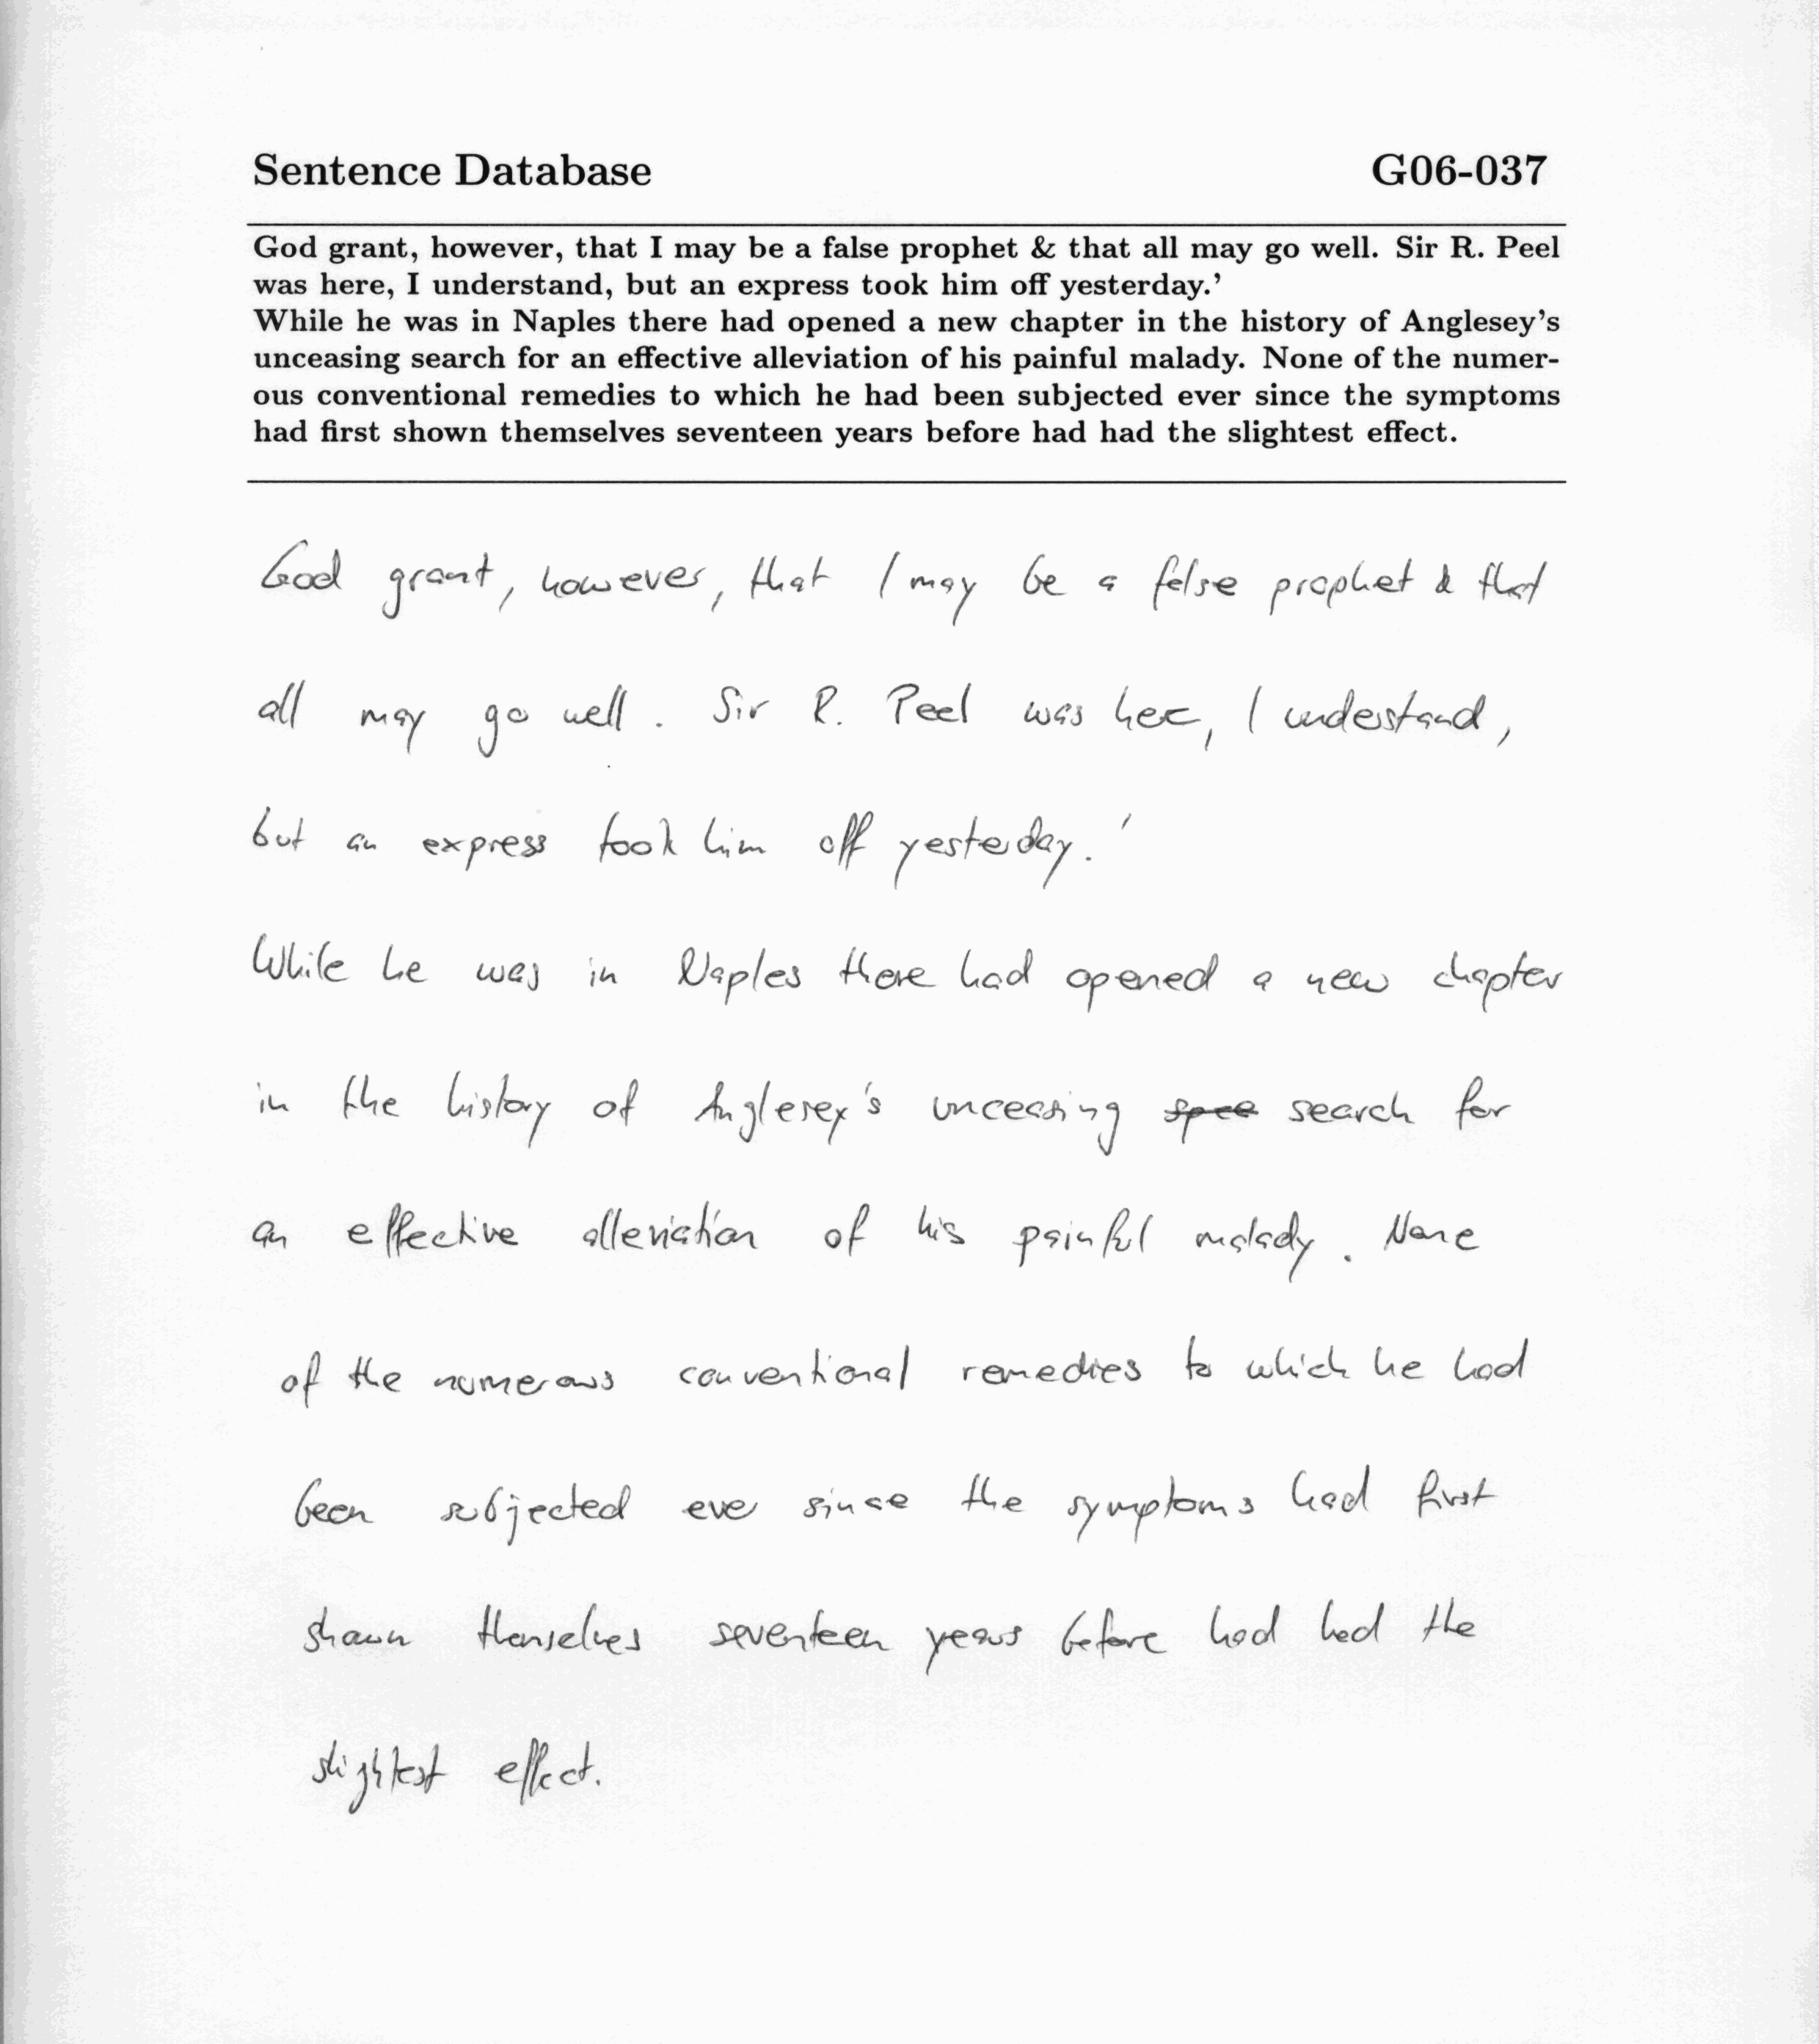 Sentence Database G06-037
God grant, however, that I may be a false prophet & that all may go well. Sir R. Peel
was here, I understand, but an express took him off yesterday.'
While he was in Naples there had opened a new chapter in the history of Anglesey's
unceasing search for an effective alleviation of his painful malady. None of the numer-
ous conventional remedies to which he had been subjected ever since the symptoms
had first shown themselves seventeen years before had had the slightest effect.
God grant, however, that I may be a false prophet & that
all may go well. Sir R. Peel was here, I understand,
but an express took him off yesterday.'
While he was in Naples there had opened a new chapter
in the history of Anglesey's unceasing search for
an effective alleviation of his painful malady. None
of the numerous conventional remedies to which he had
been subjected ever since the symptoms had first
shown themselves seventeen years before had had the
slightest effect.